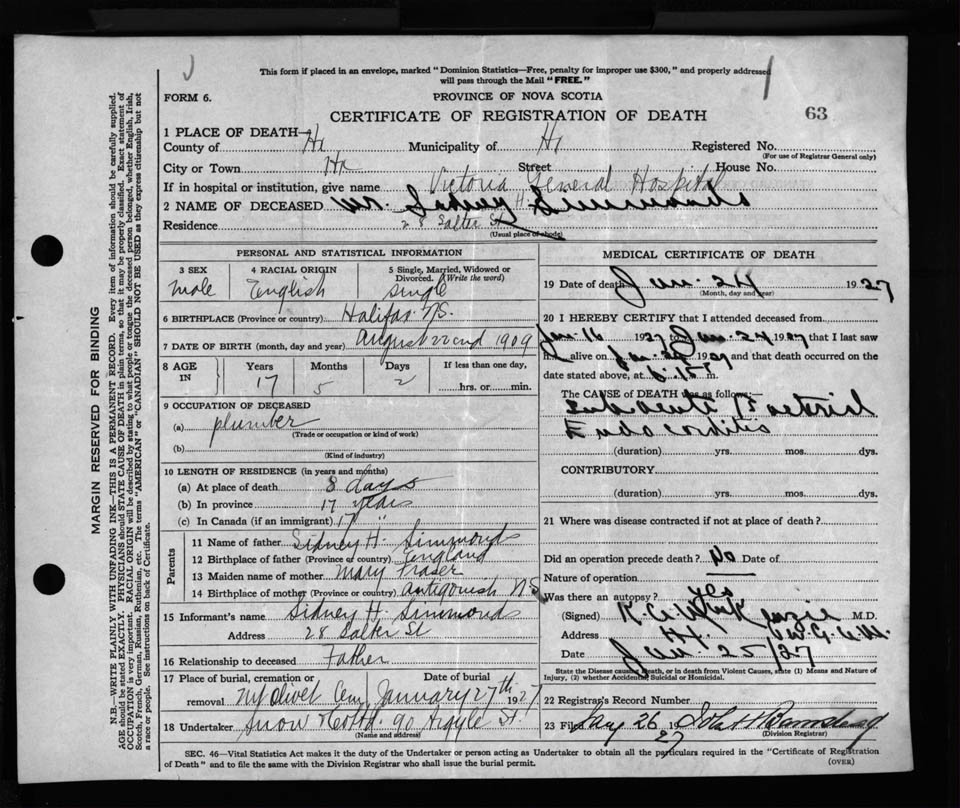 This form if placed in an envelope, marked "Dominion Statistics—Free, penalty for improper use $300," and properly addressed
will pass through the Mail "FREE."
FORM 6.
PROVINCE OF NOVA SCOTIA
CERTIFICATE OF REGISTRATION OF DEATH
63
1 PLACE OF DEATH—
County of Hx Municipality of Hx Registered No.
(For use of Registrar General only)
City or Town Hx Street House No.
If in hospital or institution, give name Victoria General Hospital
2 NAME OF DECEASED Mr. Sidney H. Simmonds
Residence 28 Salter St
(Usual place of abode)
PERSONAL AND STATISTICAL INFORMATION
3 SEX 4 RACIAL ORIGIN 5 Single, Married, Widowed or
Divorced. (Write the word)
male English single
6 BIRTHPLACE (Province or country) Halifax N.S.
7 DATE OF BIRTH (month, day and year) August 22nd 1909
8 AGE IN Years Months Days If less than one day,
17 5 2 hrs. or min.
9 OCCUPATION OF DECEASED
(a) plumber
(Trade or occupation or kind of work)
(b)
(Kind of industry)
10 LENGTH OF RESIDENCE (in years and months)
(a) At place of death 8 days
(b) In province 17 years
(c) In Canada (if an immigrant) 17 "
Parents
11 Name of father Sidney H. Simmonds
12 Birthplace of father (Province or country) England
13 Maiden name of mother Mary Fraser
14 Birthplace of mother (Province or country) Antigonish N.S.
15 Informant's name Sidney H. Simmonds
Address 28 Salter St
16 Relationship to deceased Father
17 Place of burial, cremation or Date of burial
removal Mt Olivet Cem January 27th 1927
18 Undertaker Snow & Co Ltd. 90 Argyle St.
(Name and address)
MEDICAL CERTIFICATE OF DEATH
19 Date of death Jan. 24 1927
(Month, day and year)
20 I HEREBY CERTIFY that I attended deceased from
Jan. 16 1927 to Jan. 24 1927 that I last saw
h alive on Jan. 24 1927 and that death occurred on the
date stated above, at 6.15 m.
The CAUSE of DEATH was as follows:—
Sub-acute Bacterial
Endocarditis
(duration) yrs. mos. dys.
CONTRIBUTORY
(duration) yrs. mos. dys.
21 Where was disease contracted if not at place of death?
Did an operation precede death? No Date of
Nature of operation
Was there an autopsy? Yes
(Signed) M.D.
Address Hx. V.G.H.
Date Jan 25/27
State the Disease causing Death, or in death from Violent Causes, state (1) Means and Nature of
Injury, (2) whether Accidental, Suicidal or Homicidal.
22 Registrar's Record Number
23 Filed Jany 26 1927
(Division Registrar)
SEC. 46—Vital Statistics Act makes it the duty of the Undertaker or person acting as Undertaker to obtain all the particulars required in the "Certificate of Registration
of Death" and to file the same with the Division Registrar who shall issue the burial permit.
(OVER)
MARGIN RESERVED FOR BINDING
N.B.—WRITE PLAINLY WITH UNFADING INK—THIS IS A PERMANENT RECORD. Every item of information should be carefully supplied.
AGE should be stated EXACTLY. PHYSICIANS should STATE CAUSE OF DEATH in plain terms, so that it may be properly classified. Exact statement of
OCCUPATION is very important. RACIAL ORIGIN will be described by stating to what people or tongue the deceased person belonged, whether English, Irish,
Scotch, French, German, Russian, Ruthenian, etc. The terms "AMERICAN" or "CANADIAN" SHOULD NOT BE USED as they express citizenship but not
a race or people. See instructions on back of Certificate.